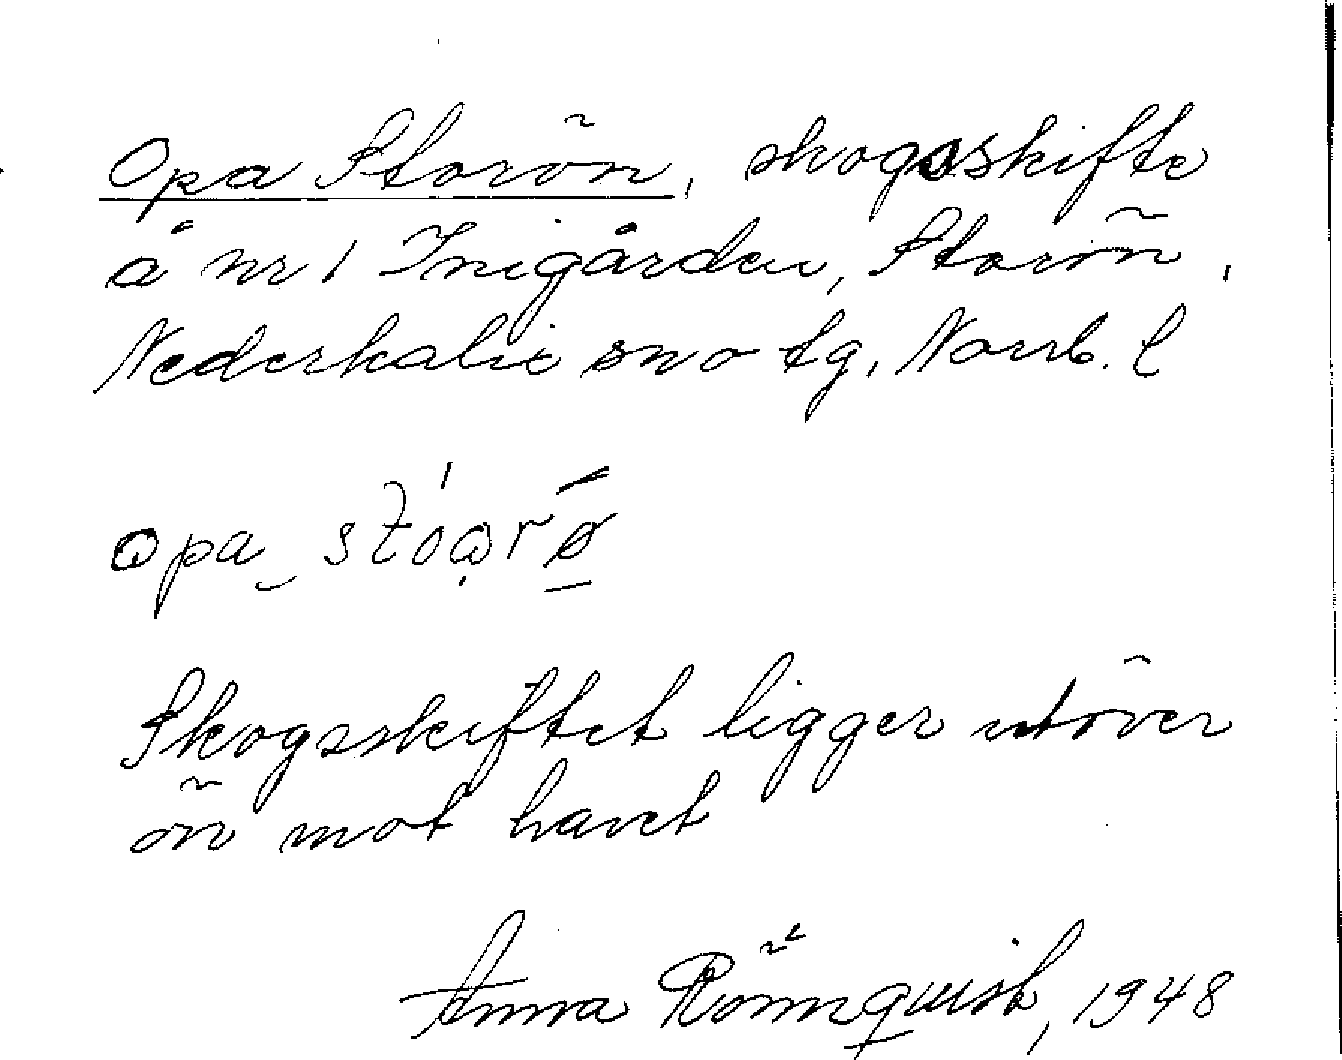 Opa Storön, skogsskifte
å nr 1 Inigården, Storön,
Nederkalix sn o tg, Norrb. l
opa stóarø
Skogsskiftet ligger utöver
ön mot havet
Anna Rönnquist, 1948